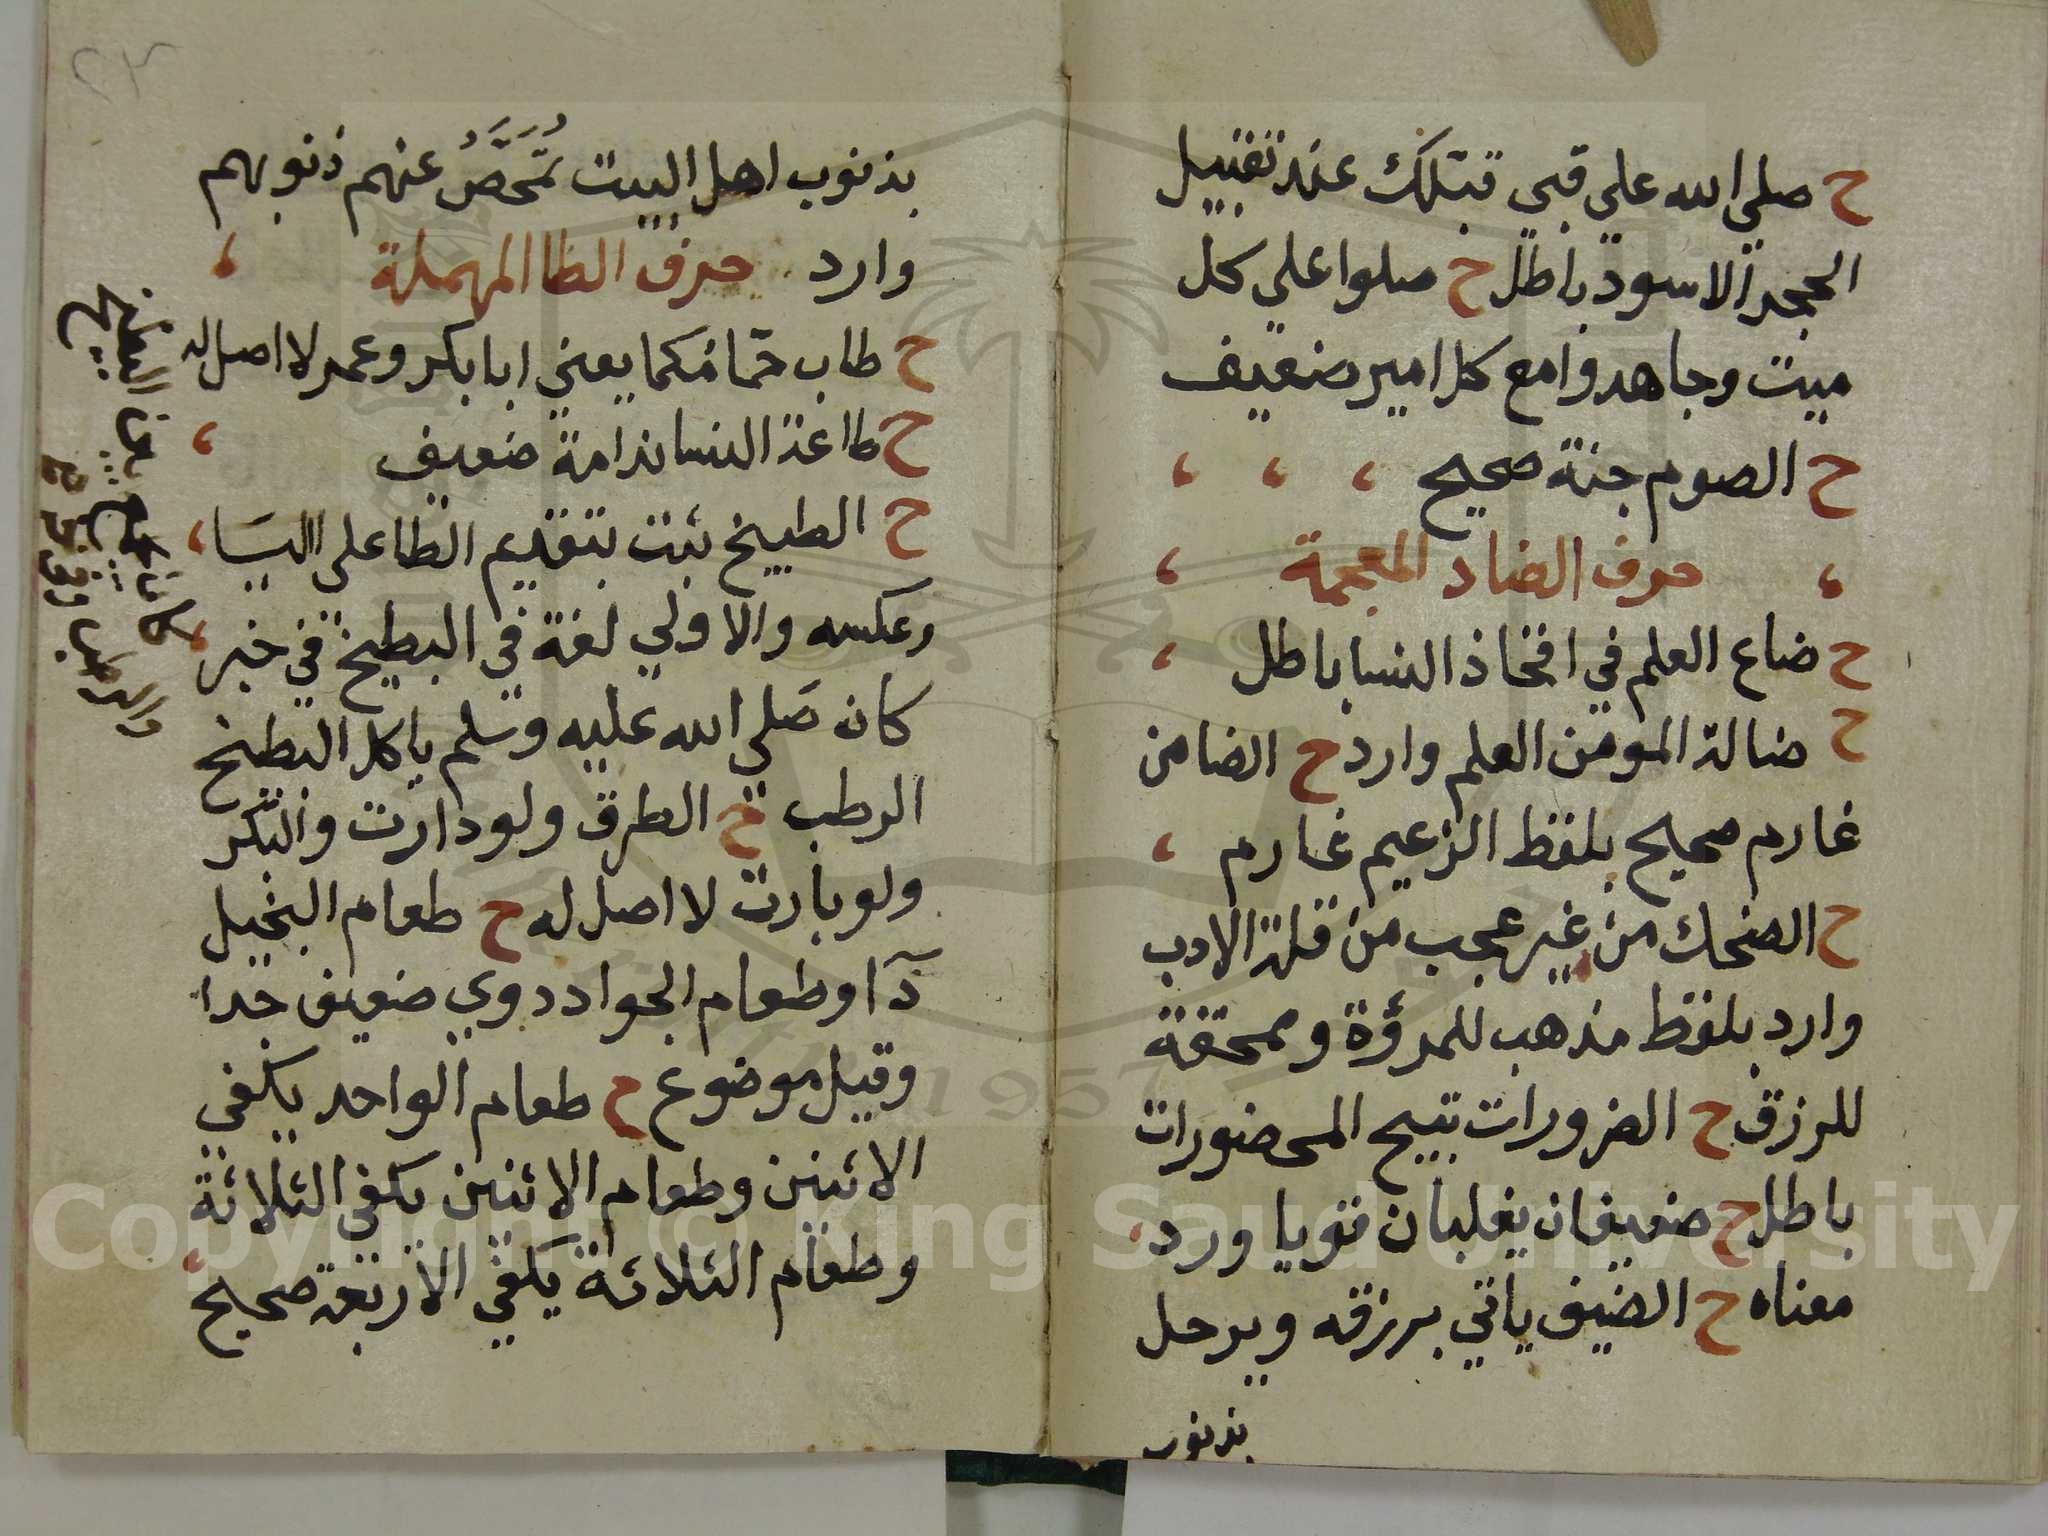 ح صلي الله علي قبي قبتلك عند تقبيل
الحجر الاسود باطل ح صلوا علي كل
ميت وجاهدوا مع كل امير ضعيف
ح الصوم جنة صحيح
حرف الضاد المعجمة
ح ضاع العلم في افخاذ النسا باطل
ح ضالة المومن العلم وارد ح الضامن
غارم صحيح بلفظ الزعيم غارم
ح الضحك من غير عجب من قلة الادب
وارد بلفظ مذهب للمروءة وممحقة
للرزق ح الضرورات تبيح المحضورات
باطل ح ضعيفان يغلبان قويا ورد
معناه ح الضيف ياتي برزقه ويرحل
بذنوب
٢٣
بذنوب اهل البيت تُمَحَّصُ عنهم ذنوبهم
وارد حرف الطا المهملة
ح طاب حمامكما يعني ابا بكر وعمر لا اصل له
ح طاعة النسا ندامة ضعيف
ح الطبيخ ثبت بتقديم الطا علي البا
وعكسه والاولي لغة في البطيخ في خبر
كان صلي الله عليه وسلم ياكل البطيخ
الرطب ح الطرق ولو دارت والبكر
ولو بارت لا اصل له ح طعام البخيل
دآ وطعام الجواد دوي ضعيف جدا
وقيل موضوع ح طعام الواحد يكفي
الاثنين وطعام الاثنين يكفي الثلاثة
وطعام الثلاثة يكفي الاربعة صحيح
Copyright © King Saud University
1957